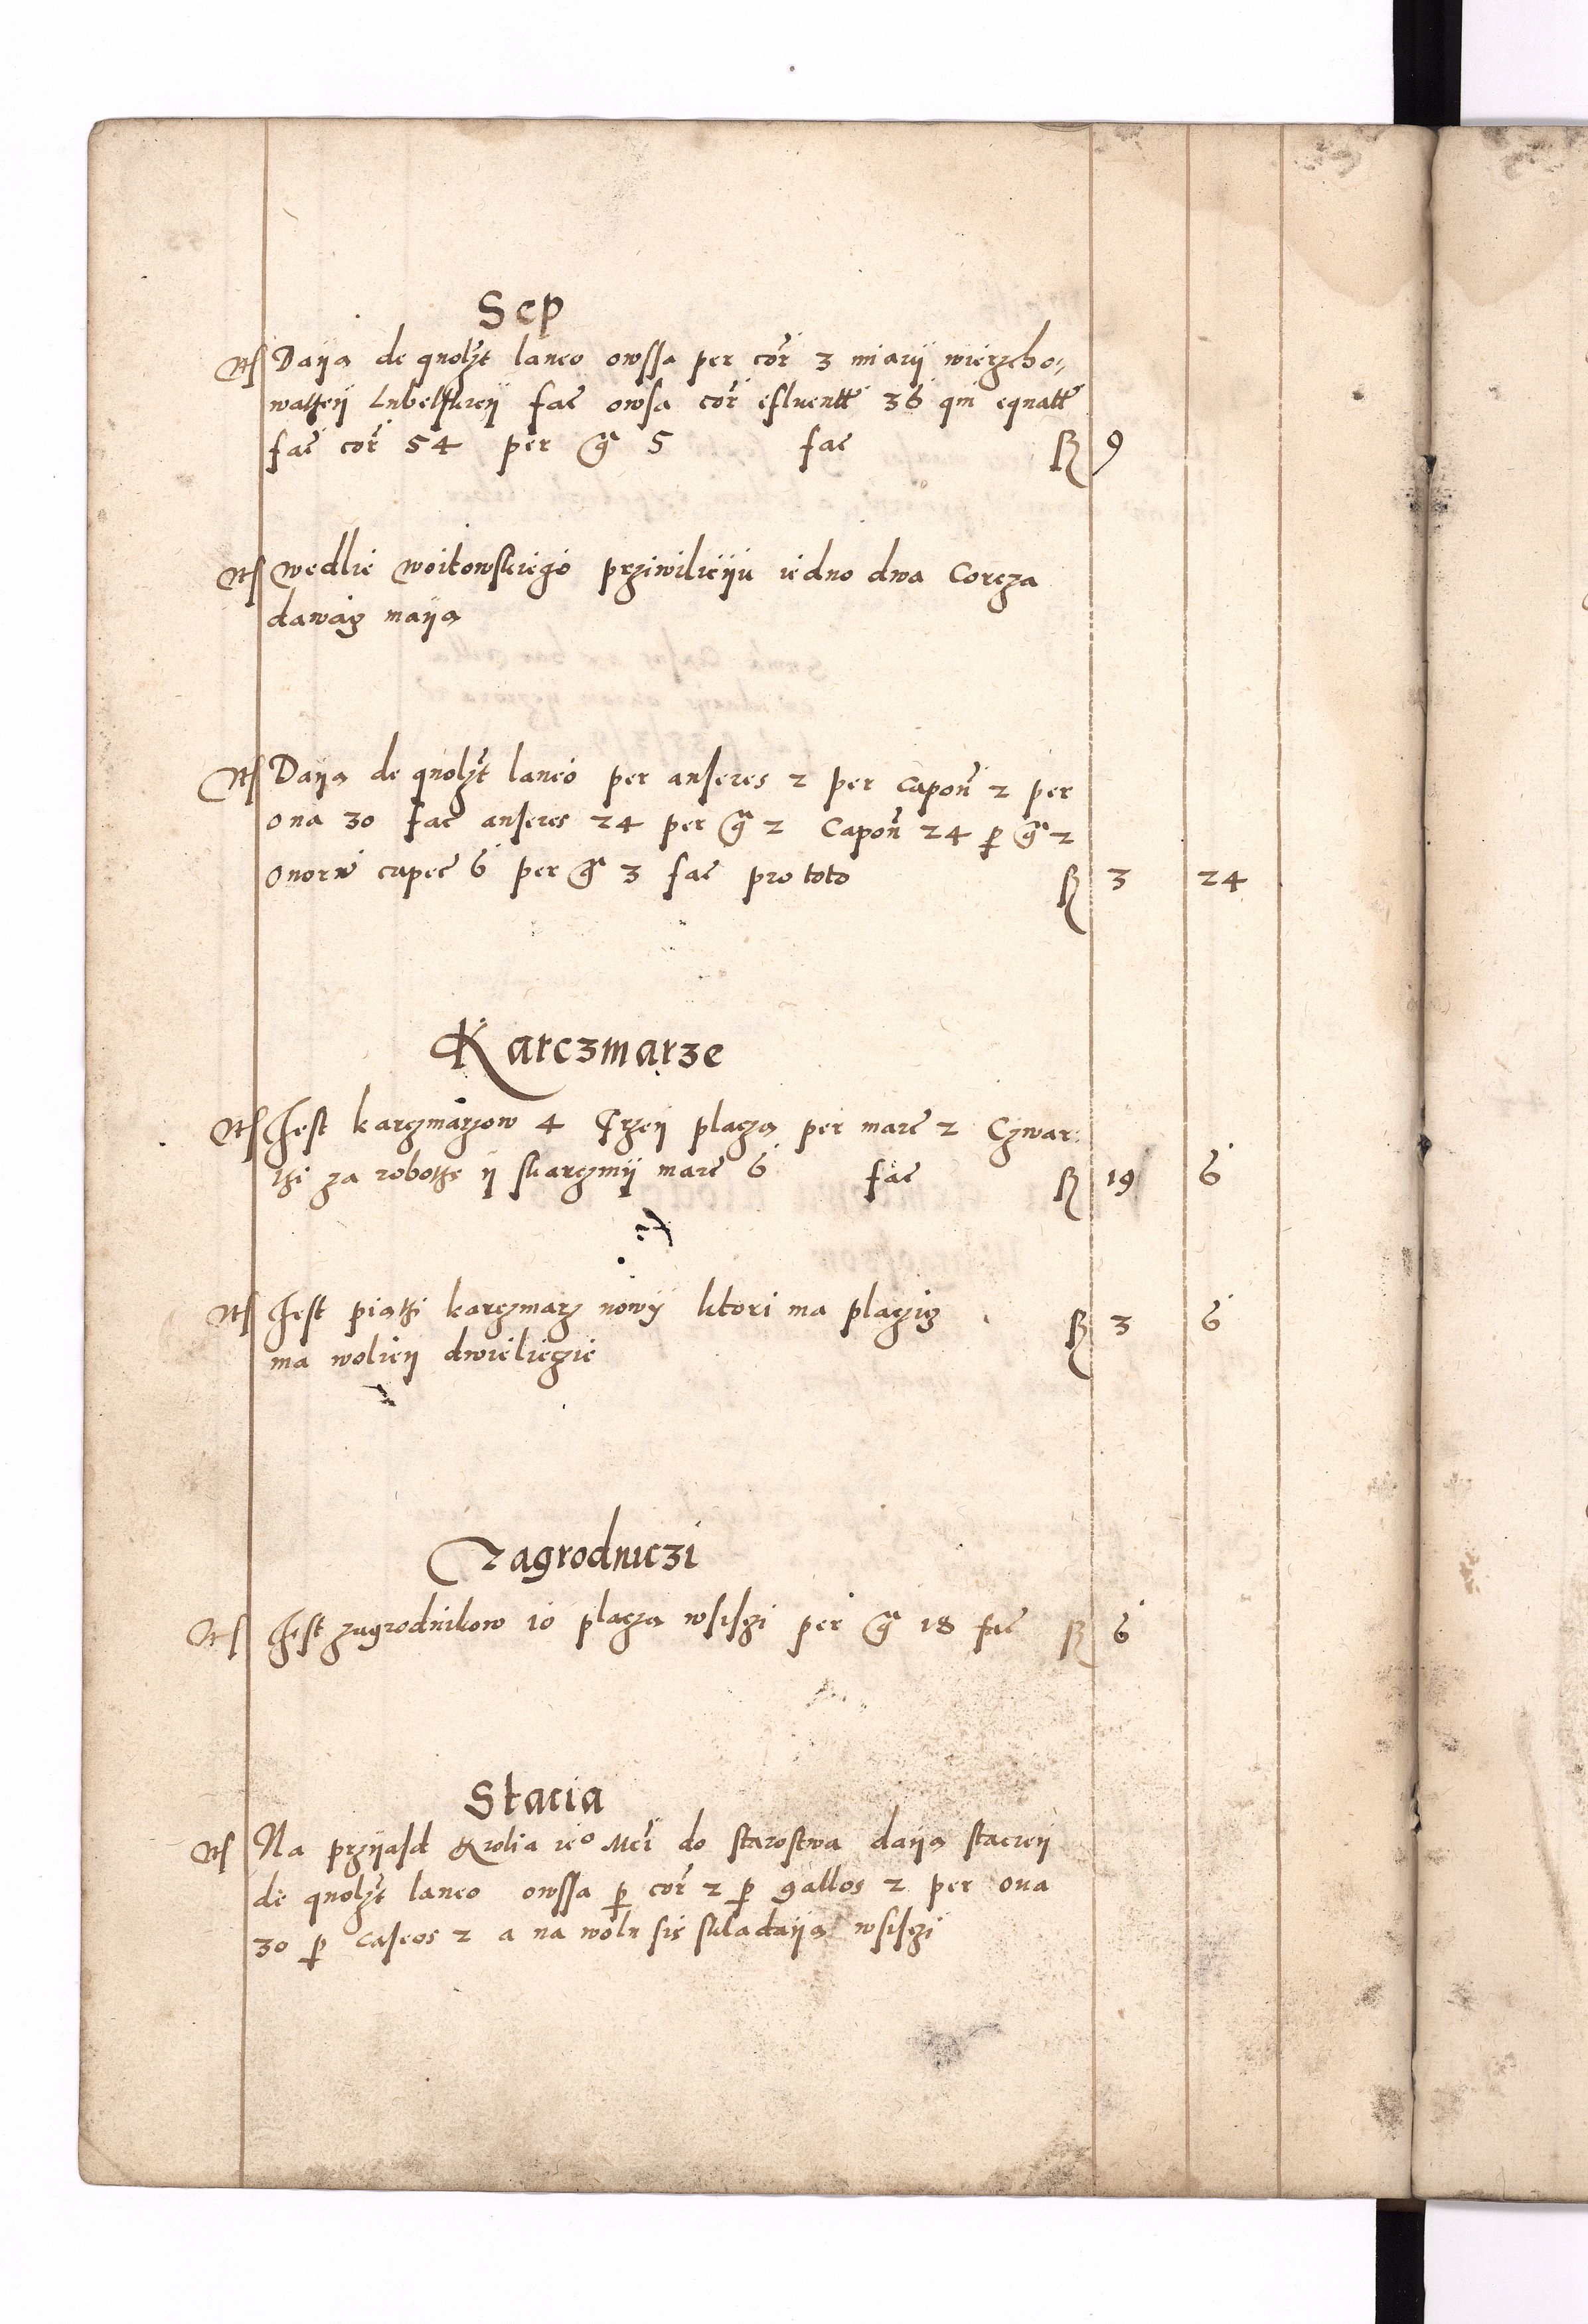 Sep
Its Daya de quolzt laneo owssa per cor 3 miary wierzcho,
watzeÿ Lubelskieÿ fac owsa cor efluentt 36 qui equatt
fac cor 54 per gr 5 fac fl 9
Its wedlie woitowskiego prziwilieÿu iedno dwa Corcza
dawacz maÿa
Its Daya de quolzt laneo per anseres 2 per capon 2 per
oua 30 fac anseres 24 per gr 2 Capon 24 p gr 2
ouoru capec 6 per gr 3 fac pro toto fl 3 24
Karczmarze
Its Jest karczmarzow 4 Trzeÿ placza per marc 2 Czwar:
tzi za robotze ÿ skarczmÿ marc 6 fac fl 19 6
Its Jest piatzi karczmarz nowÿ ktori ma placzicz fl 3 6
ma wolieÿ dwielieczie
Zagrodniczi
Its Jest zagrodnikow 10 placza wsisczi per gr 18 fac fl 6
Stacia
Its Na przÿasd Krolia ieo Mci do starostwa daya stacieÿ
de quolzt laneo owssa p cor 2 p gallos 2 per oua
30 p caseos 2 a na wolu sie skladaÿa wsisczi